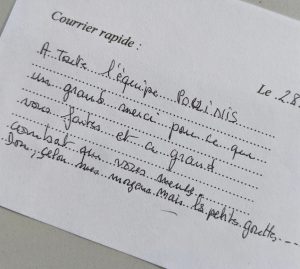 Courrier rapide :
Le 2.8
A Toute l'équipe POLLINIS
un grand merci pour ce que
vous faites et ce grand
combat que vous menez.
Don, selon mes moyens mais les petits gouttes, ....